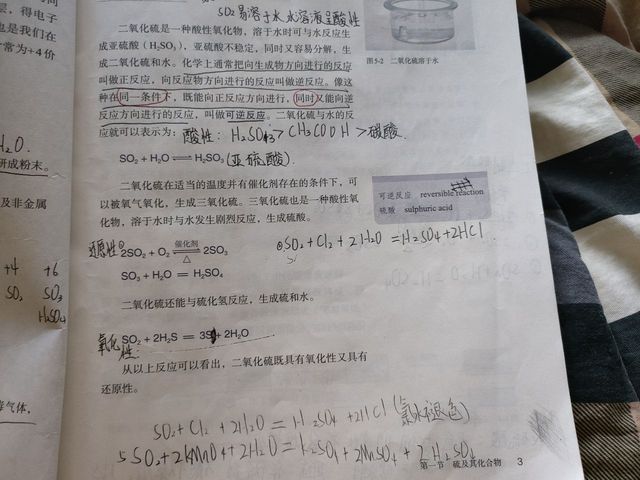 SO2易溶于水,水溶液呈酸性
二氧化硫是一种酸性氧化物，溶于水时可与水反应生
成亚硫酸（H₂SO₃），亚硫酸不稳定，同时又容易分解，生
成二氧化硫和水。化学上通常把向生成物方向进行的反应
叫做正反应，向反应物方向进行的反应叫做逆反应。像这
种在同一条件下，既能向正反应方向进行，同时又能向逆
反应方向进行的反应，叫做可逆反应。二氧化硫与水的反
应就可以表示为：
酸性：H₂SO₃>CH₃COOH>碳酸.
SO₂ + H₂O ⇌ H₂SO₃
(亚硫酸)
二氧化硫在适当的温度并有催化剂存在的条件下，可
以被氧气氧化，生成三氧化硫。三氧化硫也是一种酸性氧
化物，溶于水时与水发生剧烈反应，生成硫酸。
还原性
催化剂
2SO₂ + O₂ ⇌ 2SO₃
△
SO₃ + H₂O = H₂SO₄
二氧化硫还能与硫化氢反应，生成硫和水。
氧化性:
SO₂ + 2H₂S = 3S + 2H₂O
从以上反应可以看出，二氧化硫既具有氧化性又具有
还原性。
SO₂ + Cl₂ + 2H₂O = H₂SO₄ + 2HCl (氯水褪色)
5SO₂+2KMnO₄+2H₂O = K₂SO₄+2MnSO₄+2H₂SO₄
第一节 硫及其化合物 3
图5-2 二氧化硫溶于水
可逆反应 reversible reaction
硫酸 sulphuric acid
SO₂ + Cl₂ + 2H₂O = H₂SO₄ + 2HCl.
层，得电子
也是我们在
常为+4价
H₂O.
研成粉末。
及非金属
+4 +6
SO₂ SO₃
H₂SO₄
气体，